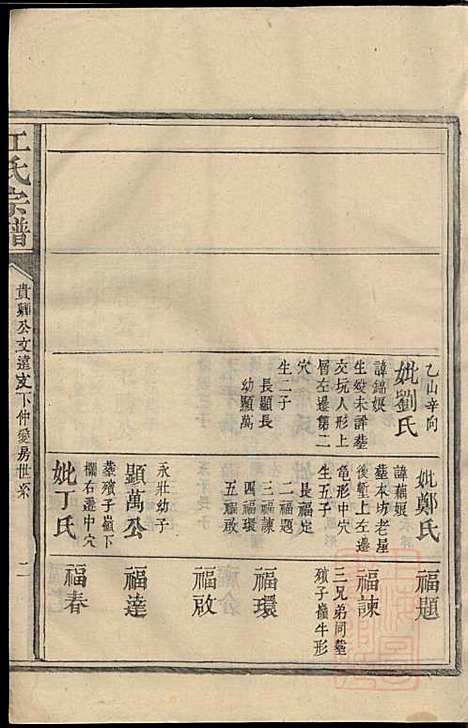 乙山辛向
妣劉氏
諱錦娛
生歿未詳墓
交坑人形上
層左邊第二
穴
生二子
長顯長
幼顯萬
妣鄭氏
墓本坊老屋
後塹上左邊
龜形中穴
生五子
長福定
二福題
三福諫
四福環
五福啟
永壯幼子
顯萬公
墓殯子嶺下
欄右邊中穴
妣丁氏
福題
福諫
三兄弟同塟
殯子嶺牛形
福環
福啟
福達
福春
江氏宗譜
貴卿公文達支下仲愛房世系
二